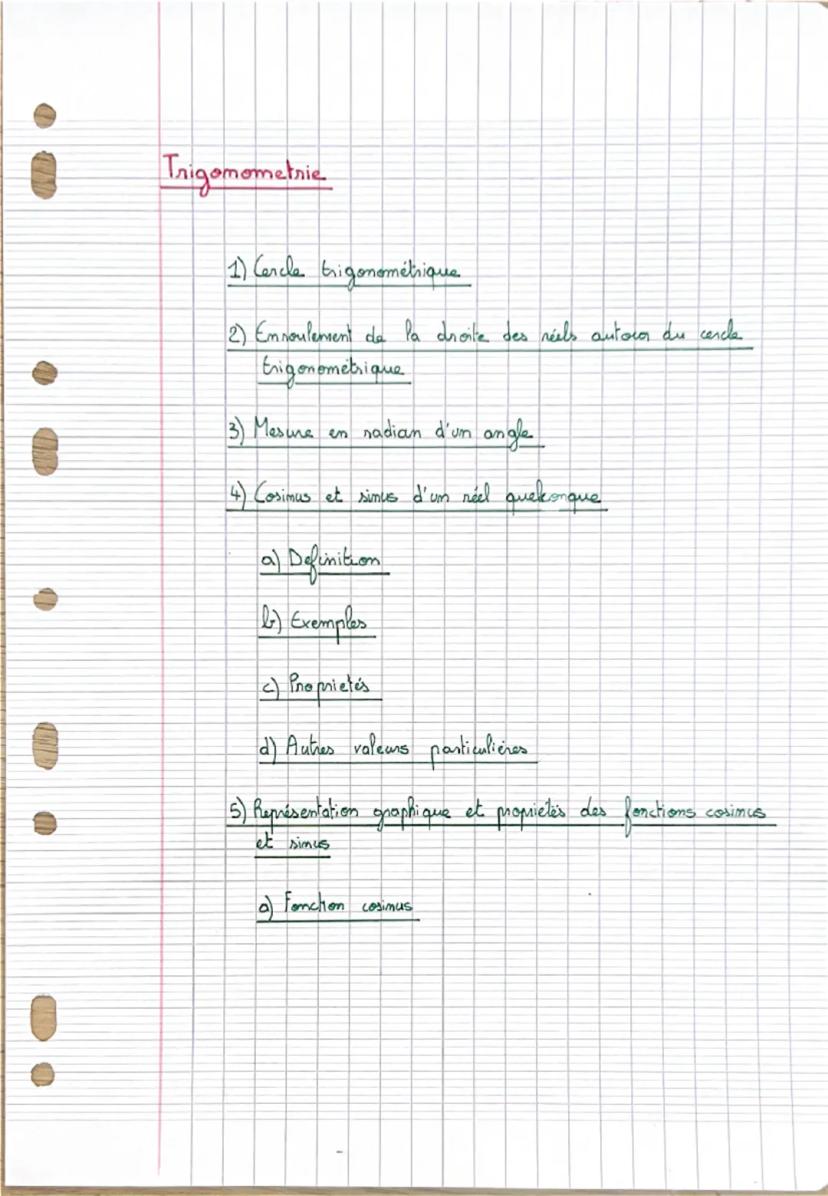 Trigonometrie
1) Cercle trigonométrique
2) Enroulement de la droite des réels autour du cercle
trigonométrique
3) Mesure en radian d'un angle
4) Cosinus et sinus d'un réel quelconque
a) Definition
b) Exemples
c) Proprietés
d) Autres valeurs particulières
5) Représentation graphique et proprietés des fonctions cosinus
et sinus
a) Fonction cosinus